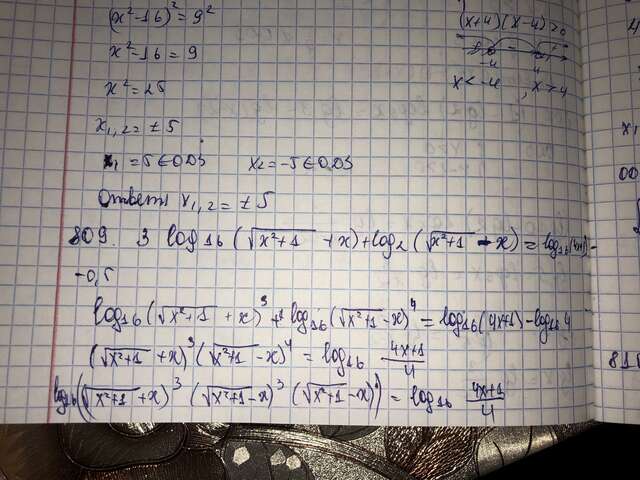 (x²-16)² = 9²
x²-16 = 9
x² = 25
x₁,₂ = ±5
x₁ = 5 ∈ ОДЗ x₂ = -5 ∈ ОДЗ
Ответ: x₁,₂ = ±5
(x+4)(x-4)>0
-4 4
x<-4, x>4
809. 3 log₁₆(√(x²+1) + x) + log₂(√(x²+1) - x) = log₁₆(4x+1) -
-0,5
log₁₆(√(x²+1) + x)³ + log₁₆(√(x²+1) - x)⁴ = log₁₆(4x+1) - log₁₆4
(√(x²+1) + x)³ (√(x²+1) - x)⁴ = log₁₆ (4x+1)/4
log₁₆((√(x²+1) + x)³ (√(x²+1) - x)³ (√(x²+1) - x)) = log₁₆ (4x+1)/4